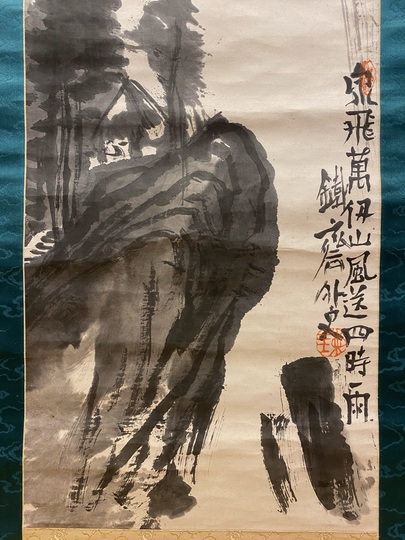 泉飛萬仞山風送四時雨
鐵齋外史